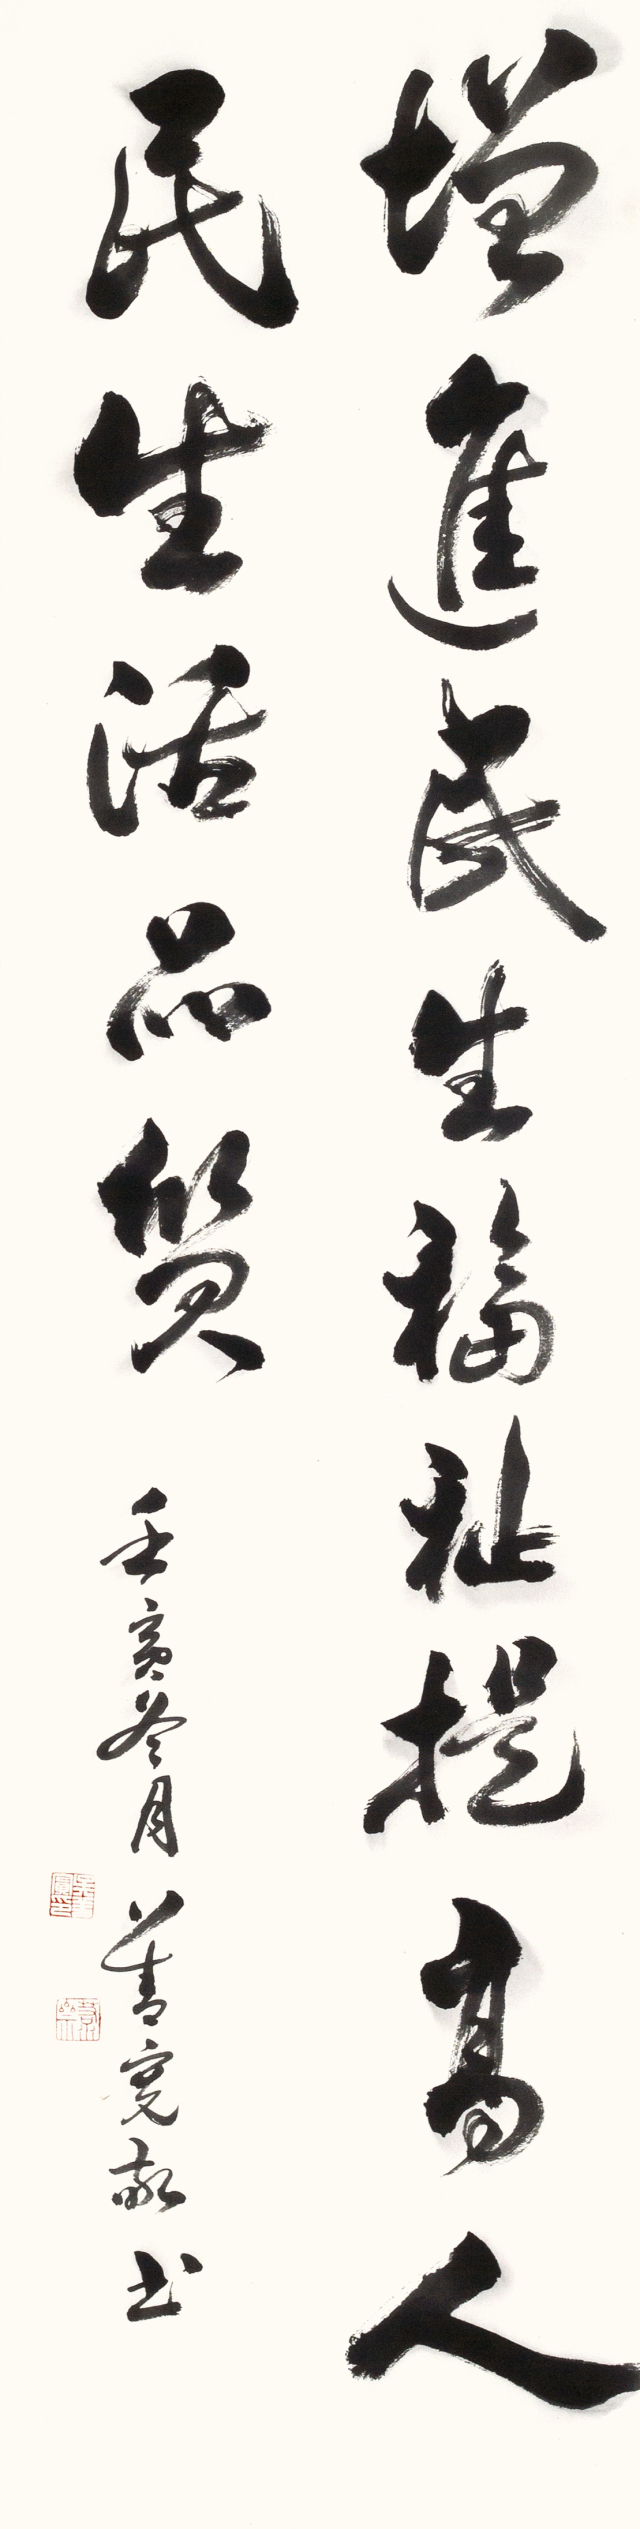 增進民生福祉提高人
民生活品質
壬寅冬月 善寬敬书